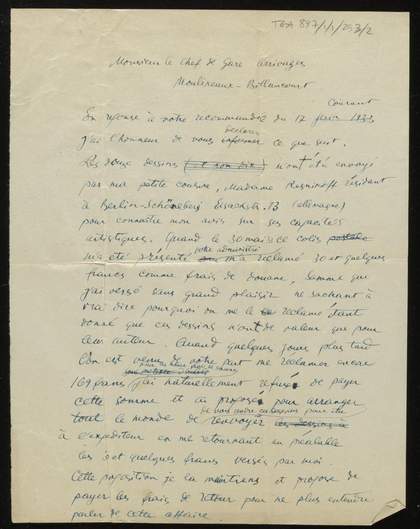 TGA 897/1/1/293/2
Monsieur le Chef de Gare arrivages
Moulineaux-Billancourt
Courant
En reponse à votre recommandée du 17
j'ai l'honneur de vous informer ce que suit.
declarer
Les douze dessins (et non dix) m'ont été envoyés
par ma petite cousine, Madame résidant
à Berlin-Schöneberg 13 (Allemagne)
pour connaître mon avis sur ses capacités
artistiques. Quand le 30 mars ce colis postal
m'a été présenté m'a réclamé 30 et quelques
francs comme frais de douane, somme que
j'ai versé sans grand plaisir ne sachant à
vrai dire pourquoi on me le reclame étant
donné que ces dessins n'ont de valeur que pour
leur auteur. Quand quelques jours plus tard
l'on est venu de votre part me réclamer encore
169 frans j'ai naturellement refusé de payer
cette somme et ai proposé pour arranger
tout le monde de renvoyer les dessins
à l'expediteur en me retournant au prealable
les 30 et quelques francs versés par moi.
Cette proposition je la maintiens et propose de
payer les frais de retour pour ne plus entendre
parler de cette affaire.